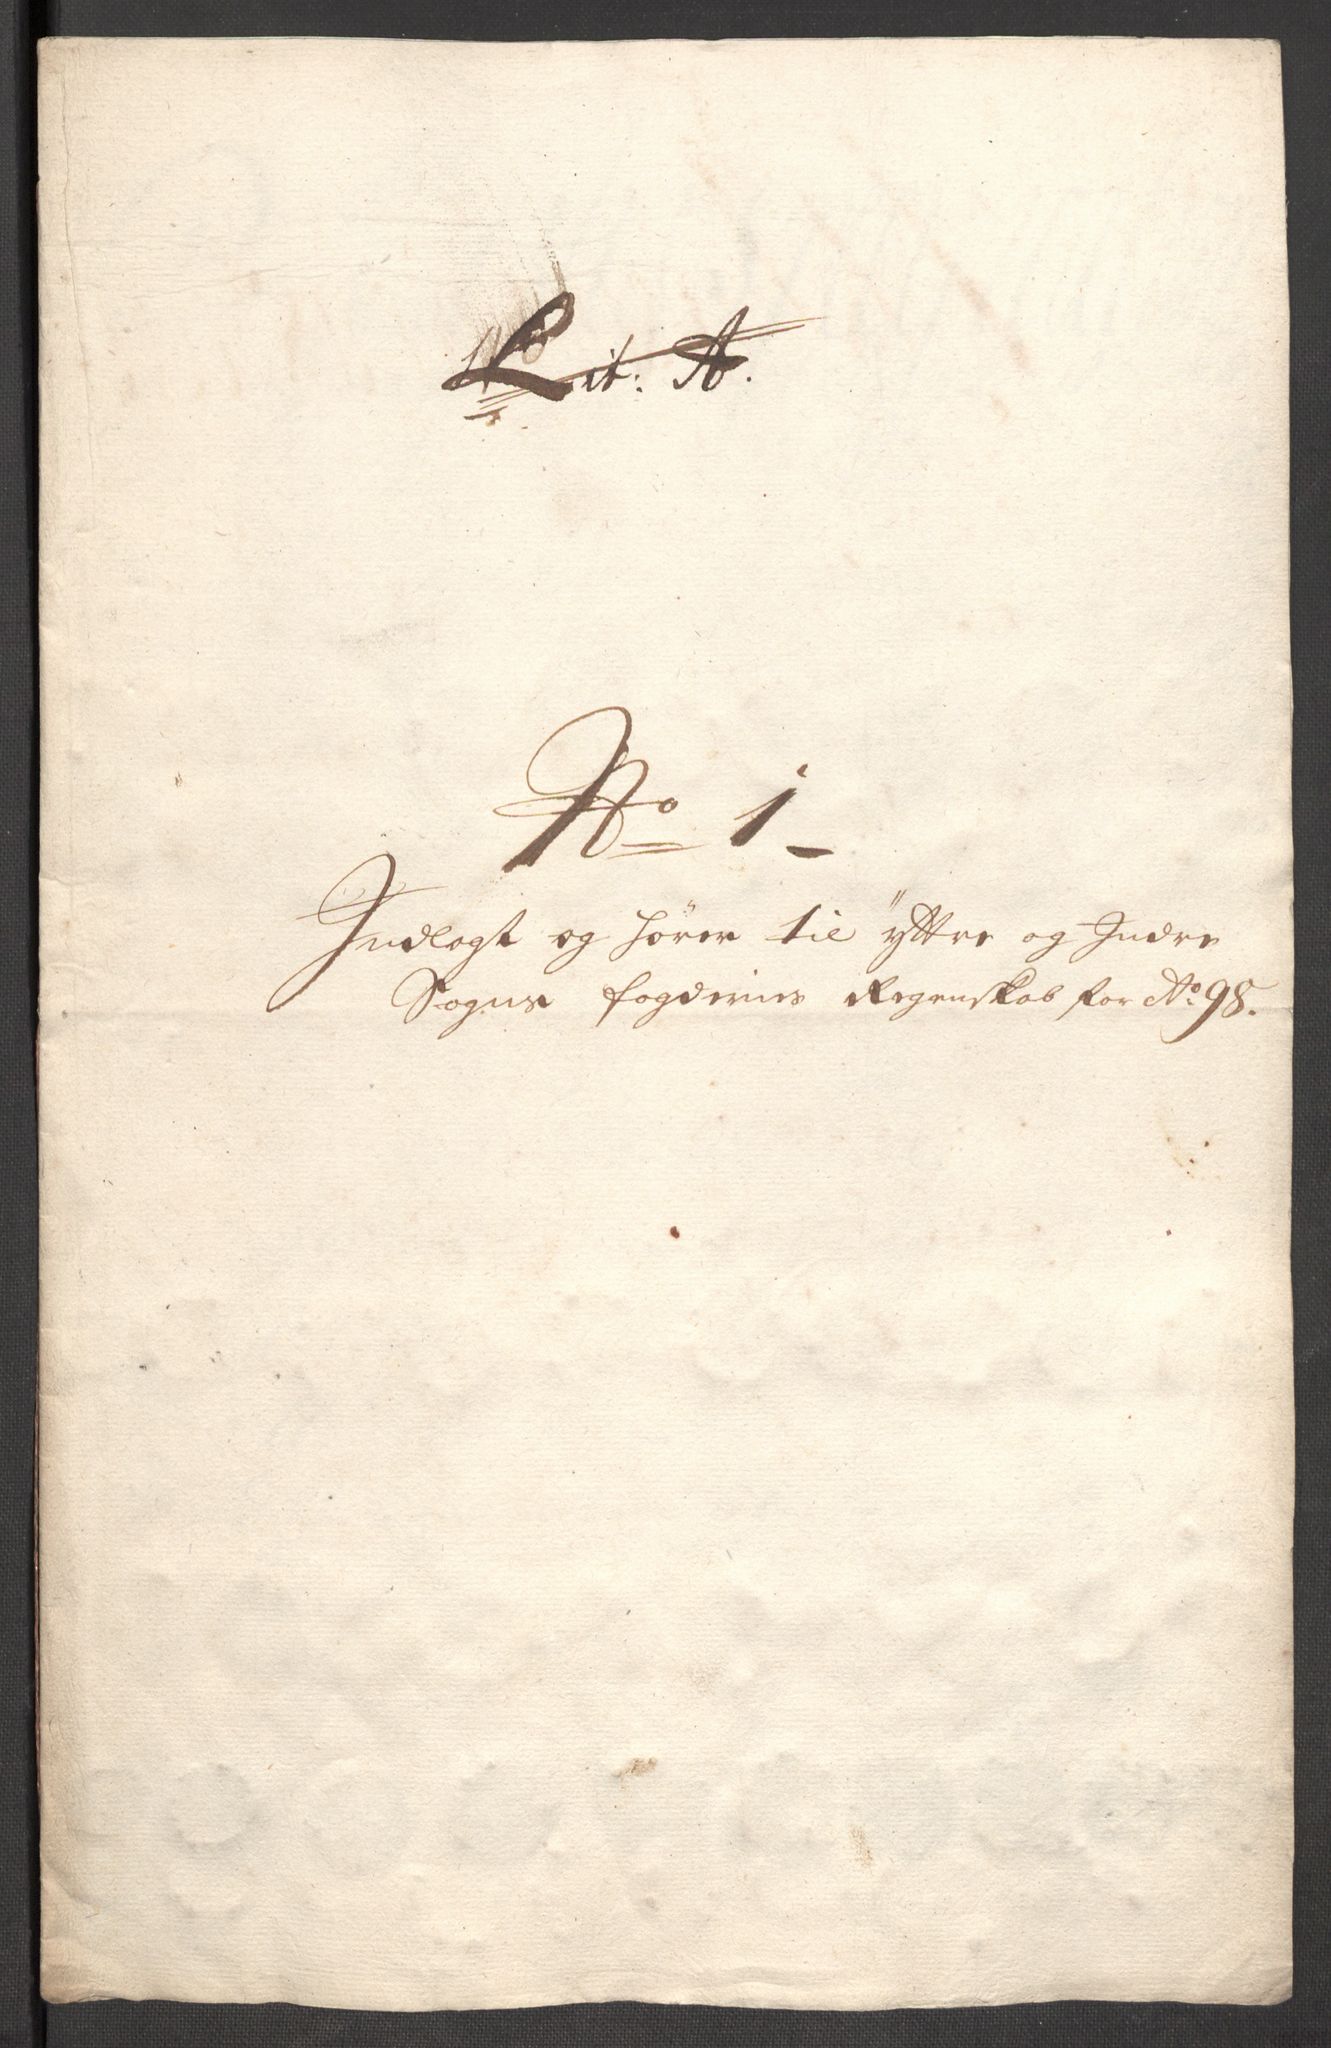 Lit: A.
No 1
Indlagt og hører til ÿttre og Indre
Sogns fogderies Regenskab for Ao: 98.